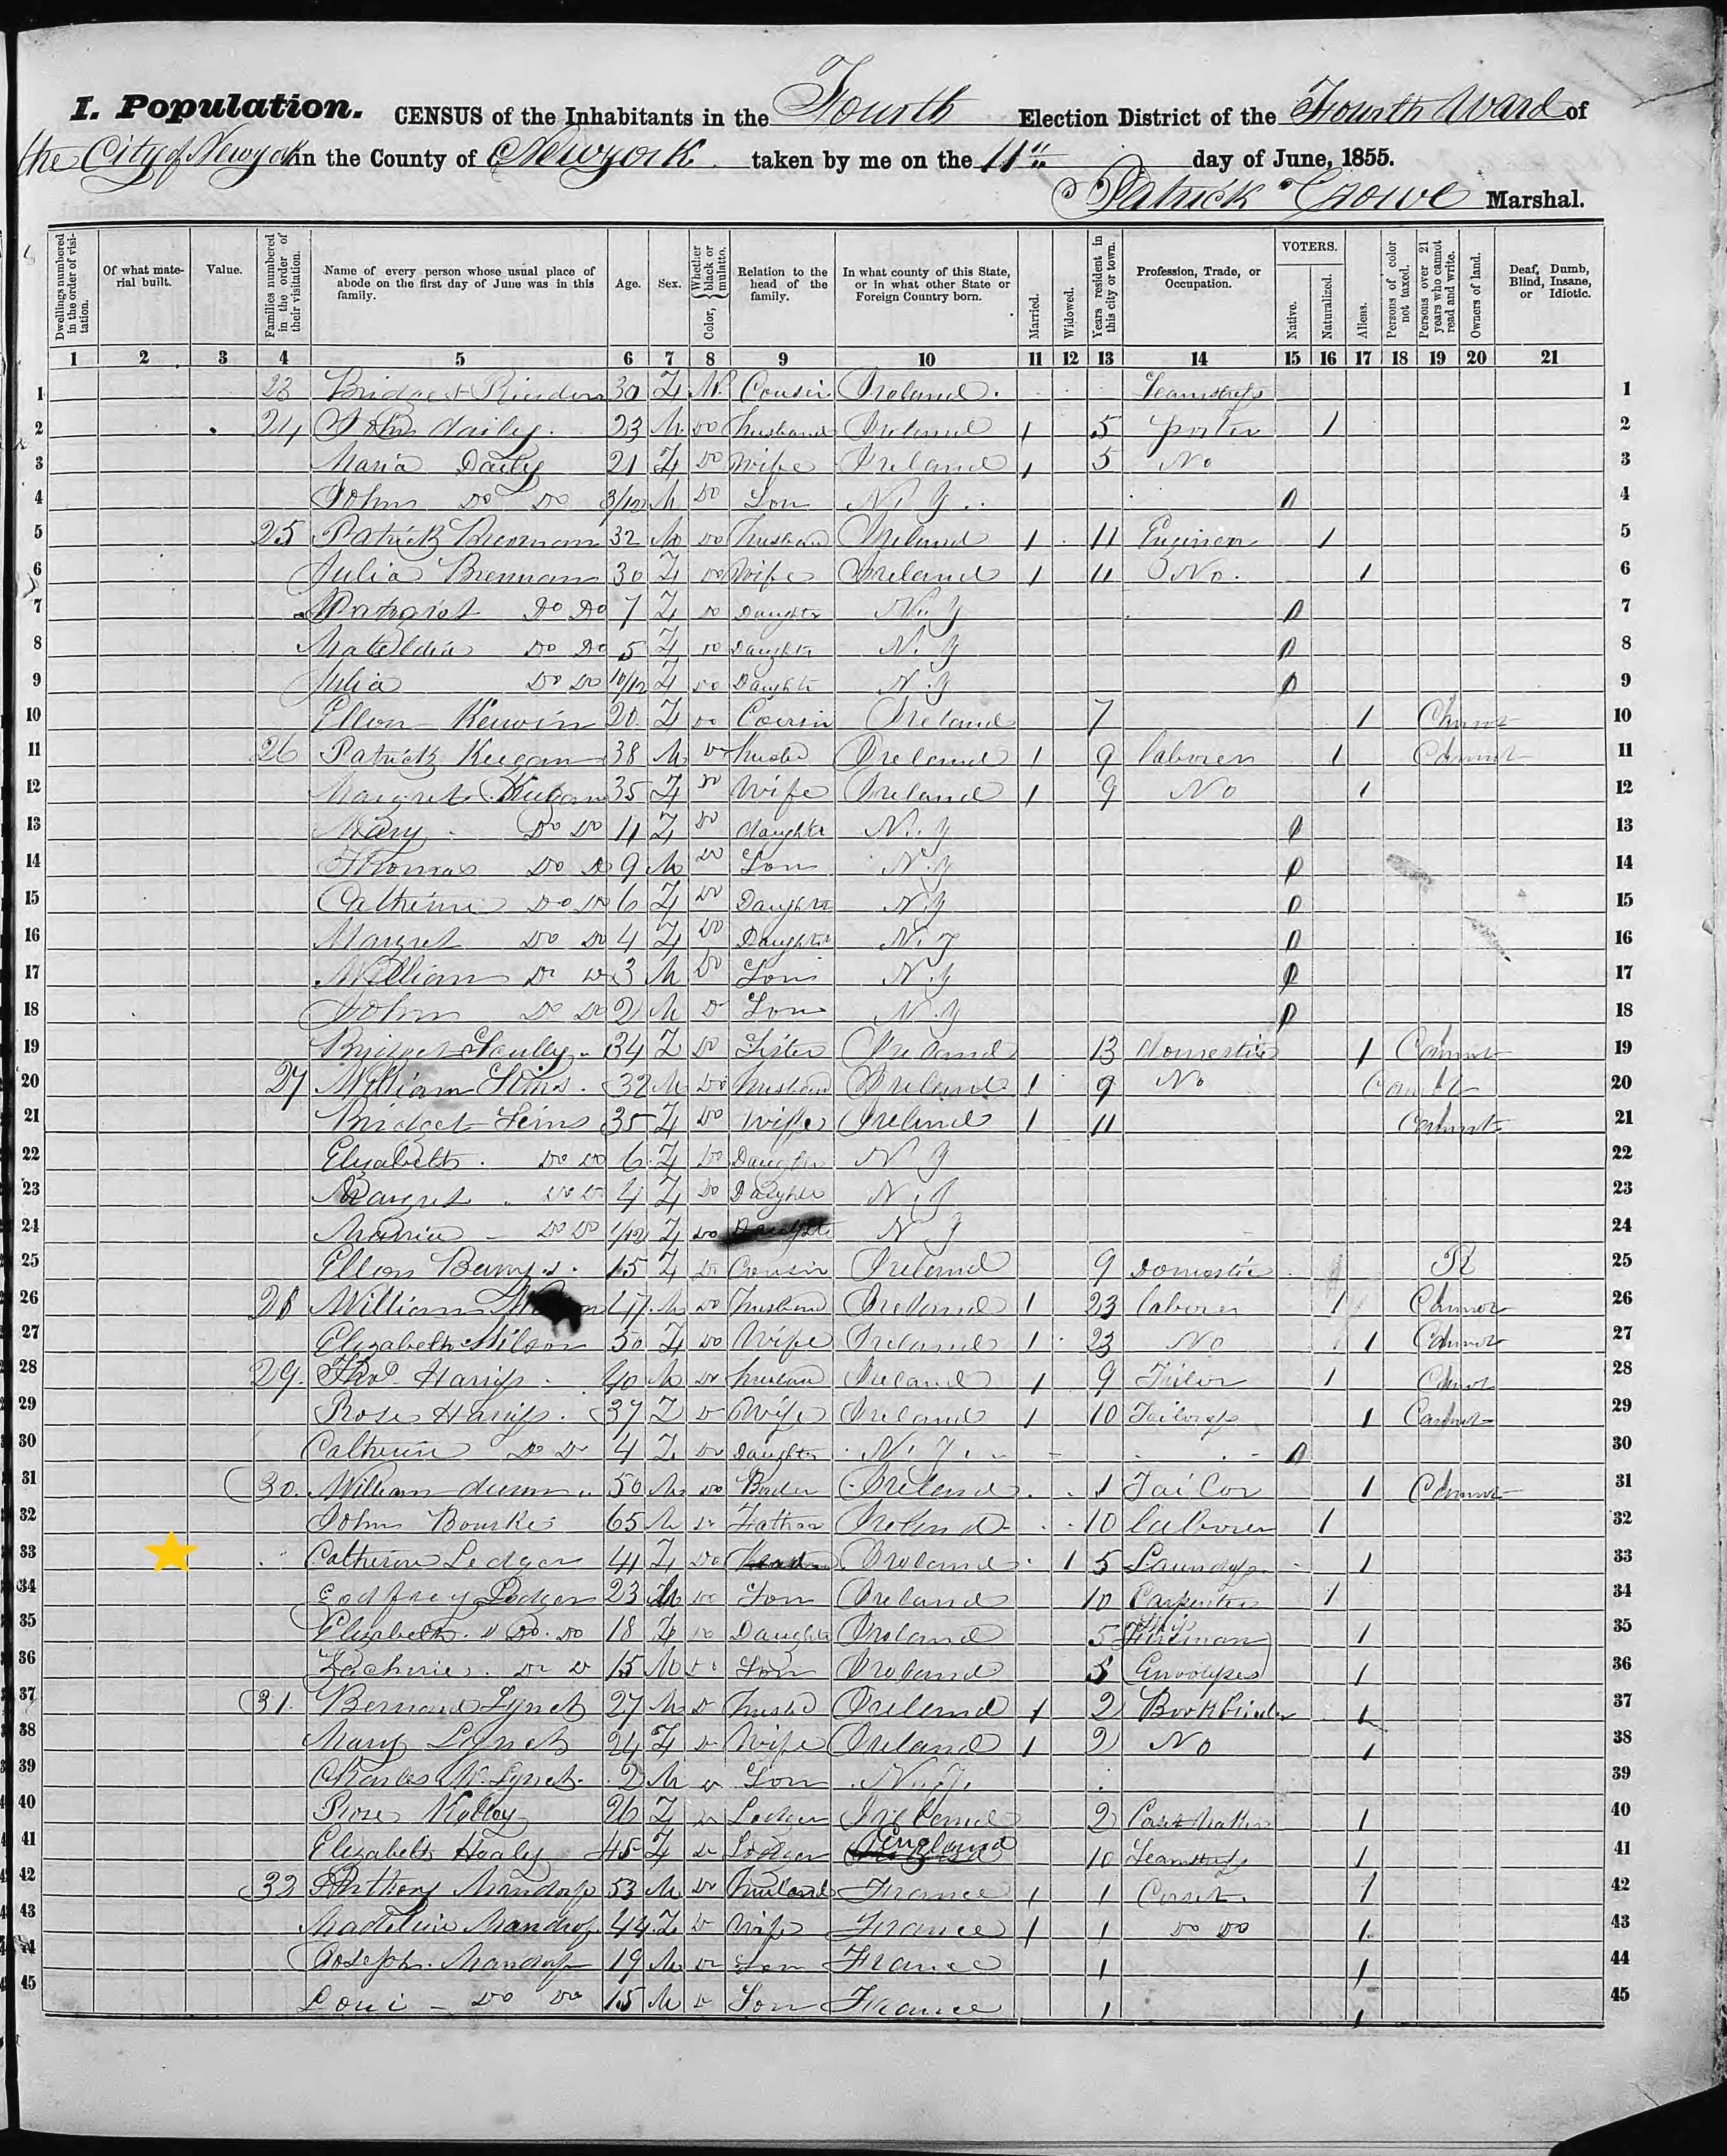 I. Population. CENSUS of the Inhabitants in the Fourth Election District of the Fourth Ward of
the City of Newyork in the County of Newyork taken by me on the 11th day of June, 1855.
Patrick Crowe Marshal.
Dwellings numbered in the order of visitation.
Of what material built.
Value.
Families numbered in the order of their visitation.
Name of every person whose usual place of abode on the first day of June was in this family.
Age.
Sex.
Color, { Whether black or mulatto.
Relation to the head of the family.
In what county of this State, or in what other State or Foreign Country born.
Married.
Widowed.
Years resident in this city or town.
Profession, Trade, or Occupation.
VOTERS.
Native.
Naturalized.
Aliens.
Persons of color not taxed.
Persons over 21 years who cannot read and write.
Owners of land.
Deaf, Dumb, Blind, Insane, or Idiotic.
1 2 3 4 5 6 7 8 9 10 11 12 13 14 15 16 17 18 19 20 21
1 23 Bridget 30 F W. Cousin Ireland. 1
2 24 John daily. 23 M Do husband Ireland 1 5 porter 1 2
3 Maria Daily 21 F Do Wife Ireland 1 5 No 3
4 John Do Do 3/12 M Do Son N. Y. 4
5 25 Patrick Brennan 32 M Do husband Ireland 1 11 Engineer 1 5
6 Julia Brennan 30 F Do Wife Ireland 1 11 No. 1 6
7 Margret Do Do 7 F Do Daughter N. Y 7
8 Do Do 5 F Do Daughter N. Y 8
9 Julia Do Do 10/12 F Do Daughter N. Y 9
10 Ellen Kerwin 20 F Do Cousin Ireland 7 1 10
11 26 Patrick Keegan 38 M Do Ireland 1 9 laborer 1 Cannot 11
12 Margret Keegan 35 F Do Wife Ireland 1 9 No 1 12
13 Mary Do Do 11 F Do daughter N. Y 13
14 Thomas Do Do 9 M Do Son N. Y 14
15 Catherine Do Do 6 F Do Daughter N. Y 15
16 Margret Do Do 4 F Do Daughter N. Y 16
17 William Do Do 3 M Do Son N. Y 17
18 John Do Do 2 M Do Son N. Y 18
19 Bridget Scully 34 F Do Sister Ireland 13 domestic 1 Cannot 19
20 27 William 32 M Do husband Ireland 1 9 No Cannot 20
21 Bridget 35 F Do Wife Ireland 1 11 Cannot 21
22 Elizabeth Do Do 6 F Do Daughter N Y 22
23 Margret Do Do 4 F Do Daughter N. Y 23
24 Do Do 1/12 F Do Daughter N Y 24
25 Ellen 15 F Do Cousin Ireland 9 Domestic 25
26 28 William 47 M Do husband Ireland 1 23 laborer 1 Cannot 26
27 Elizabeth Wilson 50 F Do Wife Ireland 1 23 No 1 Cannot 27
28 29. Thos. 40 M Do husban Ireland 1 9 Tailor 1 Cannot 28
29 Rose 37 F Do Wife Ireland 1 10 Tailoress 1 Cannot 29
30 Catherin Do Do 4 F Do Daughter N. Y. 30
31 30. William dunn 50 M Do Ireland 1 Tailor 1 Cannot 31
32 John Bourke 65 M Do Father Ireland 10 laborer 1 32
33 Catherine Ledger 41 F Do Ireland 1 5 Laundress 1 33
34 Godfrey Ledger 23 M Do Son Ireland 10 Carpenter Ship 1 34
35 Elizabeth Do. Do 18 F Do Daughter Ireland 5 1 35
36 Zacherie Do Do 15 M Do Son Ireland 5 Envolopes 1 36
37 31. Bernard Lynch 27 M Do Ireland 1 2 Bookbinder 1 37
38 Mary Lynch 24 F Do Wife Ireland 1 2 No 1 38
39 Charles Lynch 2 M Do Son N. Y. 39
40 Rose 26 F Do Lodger Ireland 2 1 40
41 Elizabeth Healy 45 F Do Lodger England 10 Seamstress 1 41
42 32 Anthony 53 M Do husband France 1 1 Corset. 1 42
43 Madeline 44 F Do Wife France 1 1 Do Do 1 43
44 Joseph 19 M Do Son France 1 1 44
45 Loui Do Do 15 M Do Son France 1 1 45